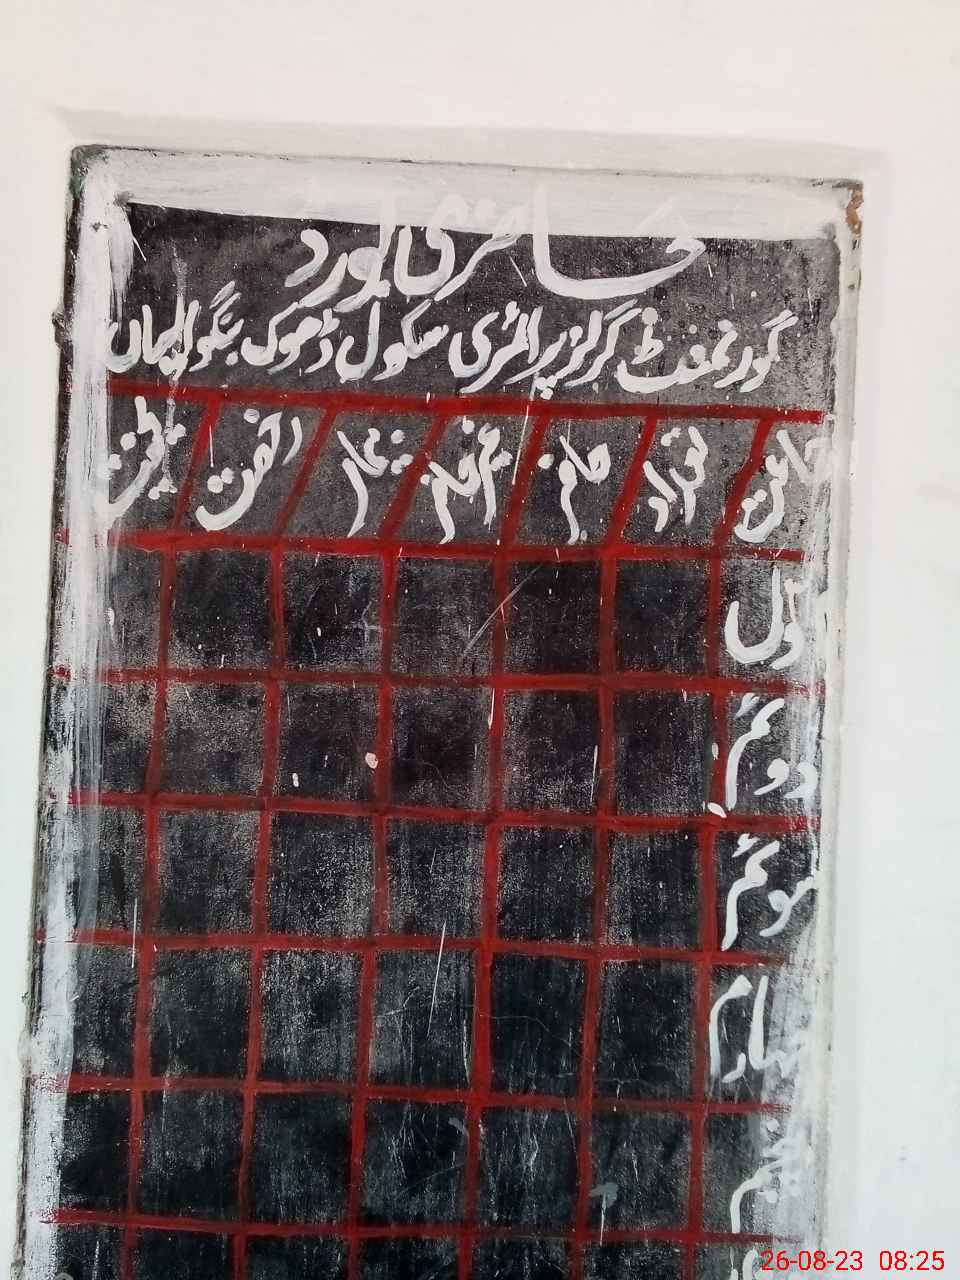 حاضری بورڈ
گورنمنٹ گرلز پرائمری سکول ڈھوک بنگوالیاں
جماعت تعداد حاضر غیر حاضر بیمار رخصت
اول
دوئم
سوئم
چہارم
پنجم
26-08-23 08:25